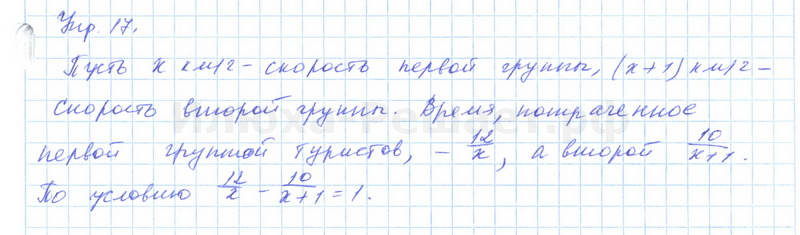 Упр. 17.
Пусть x км/ч – скорость первой группы, (x+1) км/ч –
скорость второй группы. Время, потраченное
первой группой туристов, – 12/x, а второй 10/x+1.
По условию 12/x – 10/x+1 = 1.